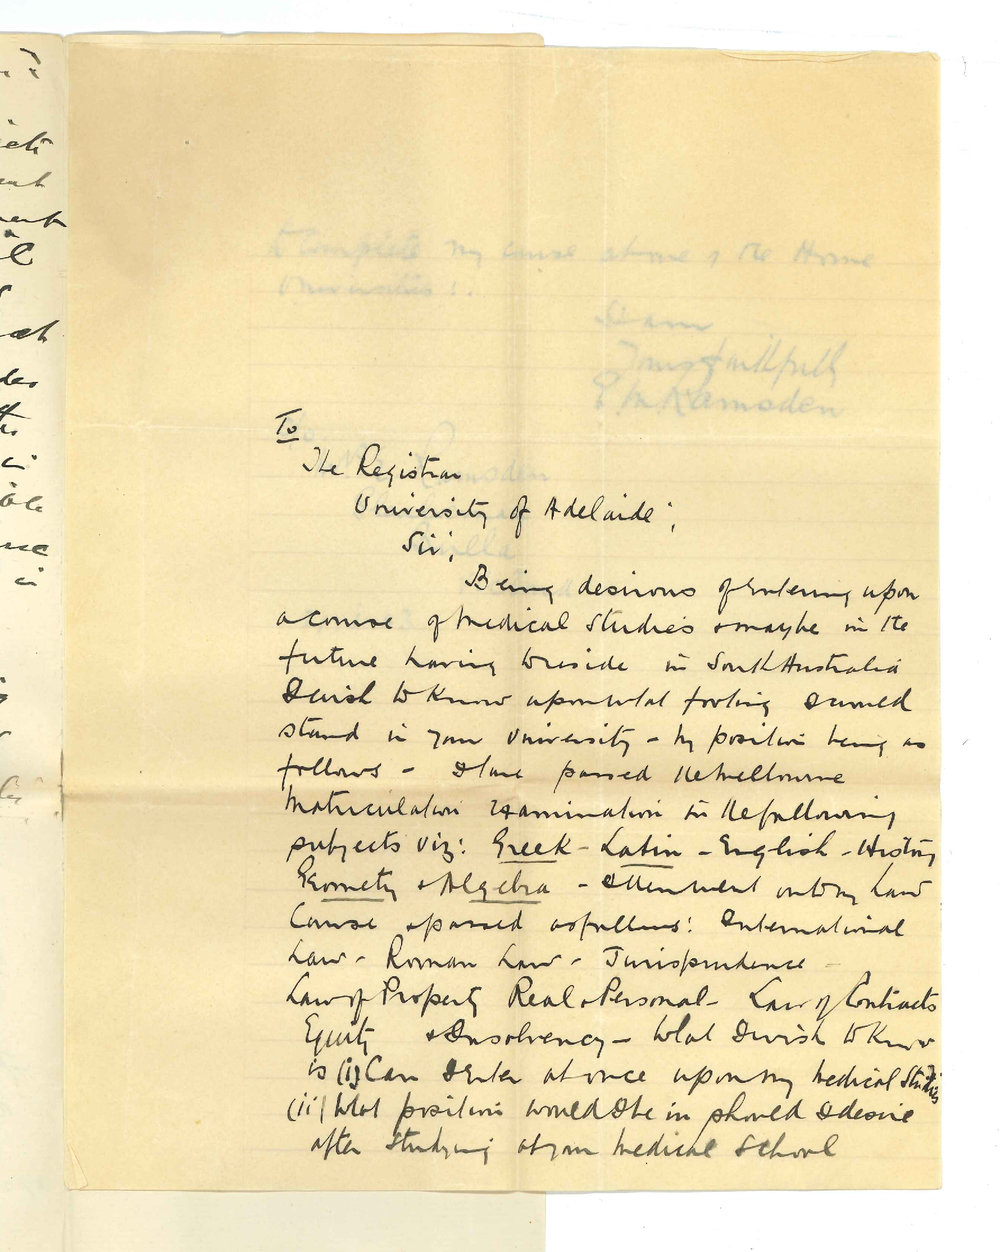 To
The Registrar
University of Adelaide;
Sir;
Being desirous of entering upon
a course of Medical Studies & maybe in the
future having to reside in South Australia
I wish to know upon what footing I would
stand in your University - My position being as
follows - I have passed the Melbourne
Matriculation Examination in the following
subjects viz: Greek - Latin - English - History
Geometry & Algebra - I then went on to my Law
Course & passed as follows: International
Law - Roman Law - Jurisprudence -
Law of Property Real & Personal - Law of Contracts
Equity & Insolvency - What I wish to know
is (i) Can I enter at once upon my Medical Studies
(ii) What position would I be in should I desire
after studying at your Medical School
to complete my course at one of the Home
Universities!.
I am
Yours faithfully
E. M. Ramsden